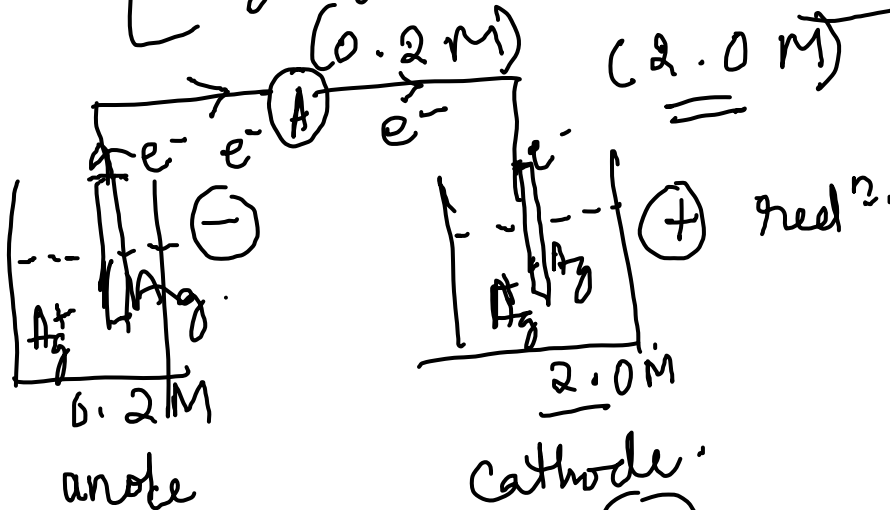 (0.2 M) (2.0 M)
A
e⁻ e⁻ e⁻ e⁻
− + redⁿ.
Ag⁺ Ag Ag⁺ Ag
0.2 M 2.0 M
anode cathode.